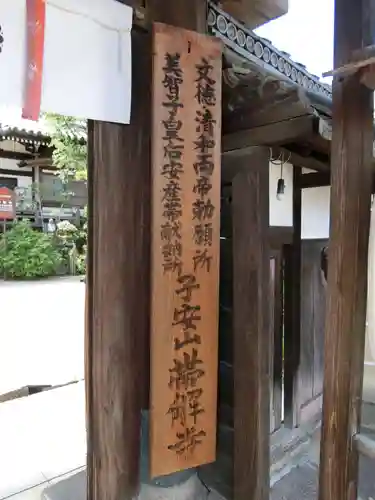 文徳清和両帝勅願所
美智子皇后安産帯献納所
子安山帯解寺